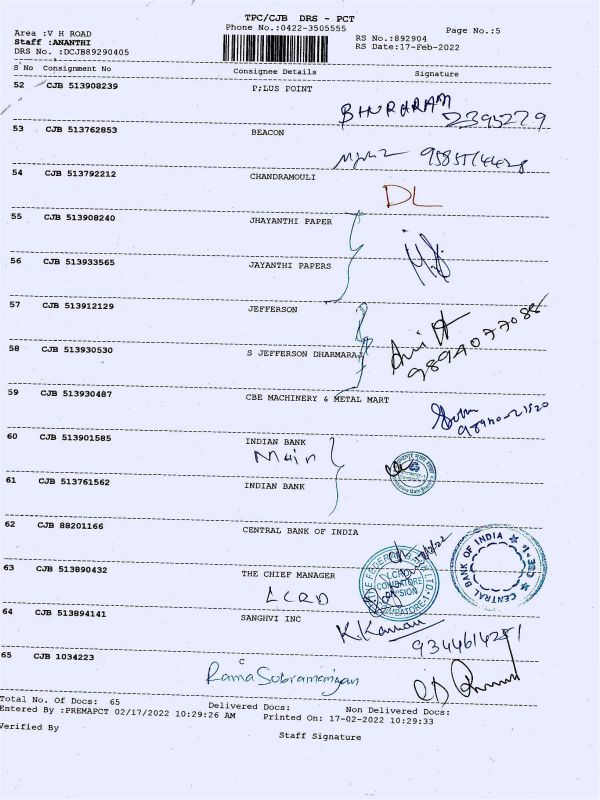 TPC/CJB DRS - PCT
Phone No.:0422-3505555
Page No.:5
Area :V H ROAD
Staff :ANANTHI
DRS No. :DCJB89290405
RS No.:892904
RS Date:17-Feb-2022
S No Consignment No Consignee Details Signature
52 CJB 513908239 P;LUS POINT
2395279
53 CJB 513762853 BEACON
54 CJB 513792212 CHANDRAMOULI
DL
55 CJB 513908240 JHAYANTHI PAPER
56 CJB 513933565 JAYANTHI PAPERS
57 CJB 513912129 JEFFERSON
58 CJB 513930530 S JEFFERSON DHARMARAJ
59 CJB 513930487 CBE MACHINERY & METAL MART
60 CJB 513901585 INDIAN BANK
Main
61 CJB 513761562 INDIAN BANK
62 CJB 88201166 CENTRAL BANK OF INDIA
CENTRAL BANK OF INDIA
63 CJB 513890432 THE CHIEF MANAGER
LCRD
LCRD
COIMBATORE
DIVISION
64 CJB 513894141 SANGHVI INC
K.Kannan
65 CJB 1034223 C
Rama Subramaniyan
Total No. Of Docs: 65 Delivered Docs: Non Delivered Docs:
Entered By :PREMAPCT 02/17/2022 10:29:26 AM Printed On: 17-02-2022 10:29:33
Verified By Staff Signature